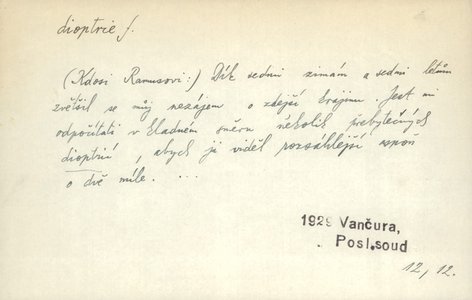 dioptrie f.
(Kdosi Ramusovi:) Dík sedmi zimám a sedmi létům
zvětšil se můj nezájem o zdejší krajinu. Jest mi
odpočítati v kladném směru několik přebytečných
dioptrií, abych ji viděl rozsáhlejší aspoň
o dvě míle. ...
1929 Vančura,
Posl. soud
12, 12.